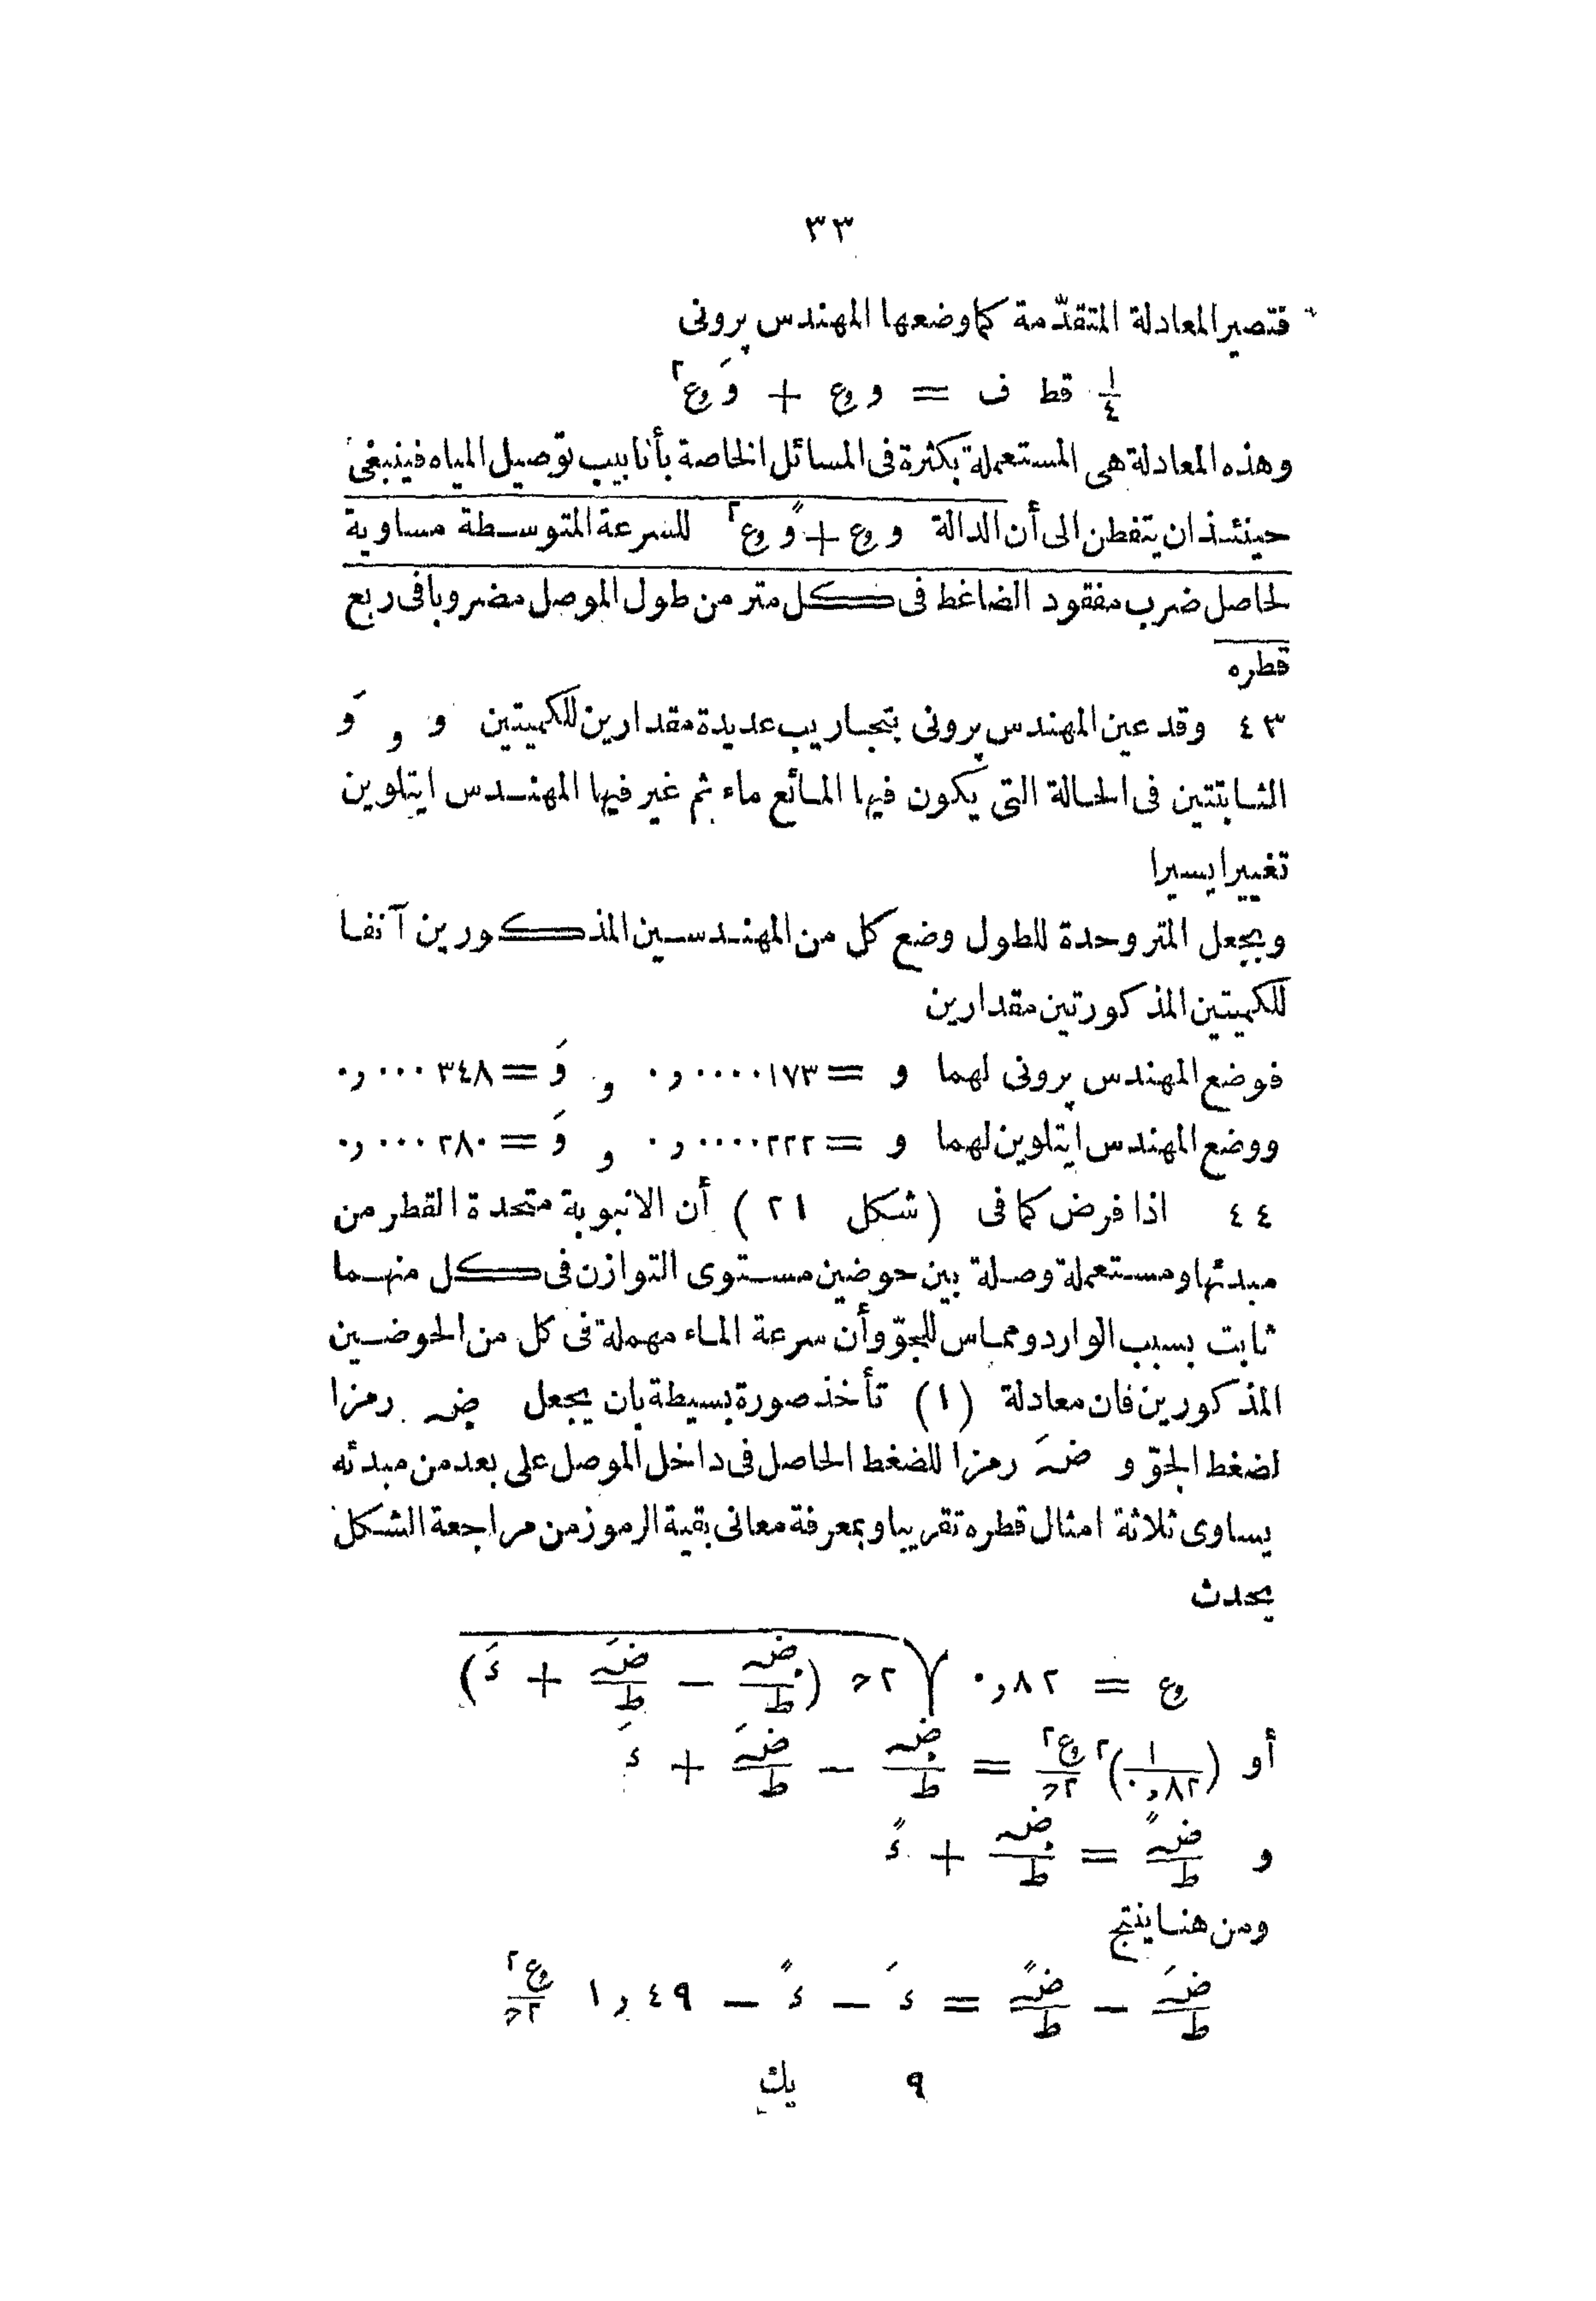 ٣٣
فتصير المعادلة المتقدّمة كما وضعها المهندس پرونى
١/٤ قط ف = و ع + وَ ع٢
وهذه المعادلة هى المستعملة بكثرة فى المسائل الخاصة بأنابيب توصيل المياه فينبغى
حينئذ ان يتفطن الى أن الدالة و ع + وً ع٢ للسرعة المتوسطة مساوية
لحاصل ضرب مفقود الضاغط فى كل متر من طول الموصل مضروبا فى ربع
قطره
٤٣ وقد عين المهندس پرونى بتجاريب عديدة مقدارين للكميتين و و وَ
الثابتتين فى الحالة التى يكون فيها المائع ماء ثم غير فيها المهندس ايتلوين
تغييرا يسيرا
وبجعل المتر وحدة للطول وضع كل من المهندسين المذكورين آنفا
للكميتين المذكورتين مقدارين
فوضع المهندس پرونى لهما و = ٠,٠٠٠٠١٧٣ و وَ = ٠,٠٠٠٣٤٨
ووضع المهندس ايتلوين لهما و = ٠,٠٠٠٠٢٢٢ و وَ = ٠,٠٠٠٢٨٠
٤٤ اذا فرض كما فى (شكل ٢١) أن الانبوبة متحدة القطر من
مبدئها ومستعملة وصلة بين حوضين مستوى التوازن فى كل منهما
ثابت بسبب الوارد ومماس للجوّ وأن سرعة الماء مهملة فى كل من الحوضين
المذكورين فان معادلة (١) تأخذ صورة بسيطة بان يجعل ضہ رمزا
لضغط الجوّ و ضہَ رمزا للضغط الحاصل فى داخل الموصل على بعد من مبدئه
يساوى ثلاثة امثال قطره تقريبا وبمعرفة معانى بقية الرموز من مراجعة الشكل
يحدث
ع = ٠,٨٢ √(٢ح (ضہ/ط − ضہَ/ط + ءَ))
أو (١/٠,٨٢)٢ ع٢/٢ح = ضہ/ط − ضہَ/ط + ءَ
و ضہً/ط = ضہ/ط + ءً
ومن هنا ينتج
ضہَ/ط − ضہً/ط = ءَ − ءً − ١,٤٩ ع٢/٢ح
٩ يك